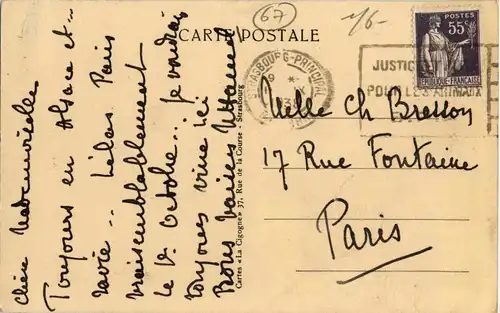 67
1/6-
CARTE POSTALE
POSTES
55c
REPUBLIQUE FRANÇAISE
STRASBOURG-PRINCIPAL
JUSTICE
POUR LES ANIMAUX
Chère Mademoiselle
Toujours en Alsace et
ravie... Hélas Paris
vraisemblablement
le 1er Octobre... je voudrais
toujours vivre ici
Bons baisers
Cartes « La Cigogne » 37, Rue de la Course - Strasbourg
Melle Ch Bresson
17 Rue Fontaine
Paris